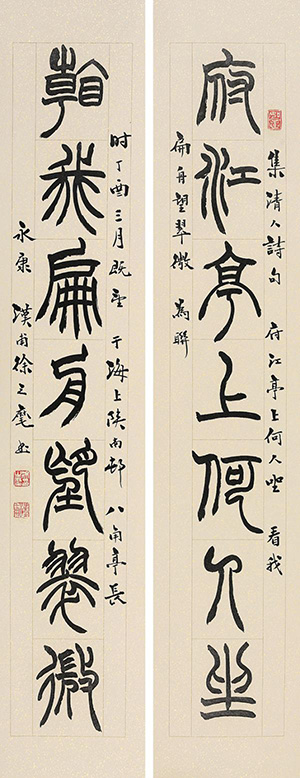 府江亭上何人坐
集清人詩句 府江亭上何人坐 看我
扁舟望翠微 為聯
看我扁舟望翠微
时丁酉三月既望 于海上陕南邨 八角亭長
永康 漢甫徐之